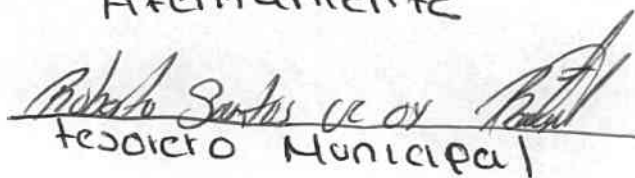 Atentamente
Roberto Santos Uc oy
tesorero Municipal